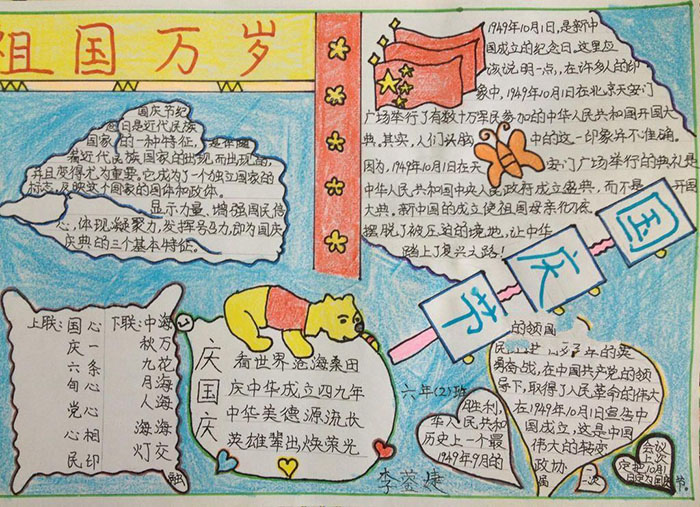 祖国万岁
国庆节纪
念日是近代民族
国家的一种特征,是伴随
着近代民族国家的出现而出现的,
并且变得尤为重要。它成为了一个独立国家的
标志,反映这个国家的国体和政体。
显示力量、增强国民信
心,体现凝聚力,发挥号召力,即为国庆
庆典的三个基本特征。
1949年10月1日,是新中
国成立的纪念日,这里应
该说明一点,在许多人的印
象中,1949年10月1日在北京天安门
广场举行了有数十万军民参加的中华人民共和国开国大
典。其实,人们头脑中的这一印象并不准确。
因为,1949年10月1日在天安门广场举行的典礼是
中华人民共和国中央人民政府成立盛典,而不是开国
大典。新中国的成立使祖国母亲彻底
摆脱了被压迫的境地,让中华
踏上了复兴之路!
国庆节
上联:国庆六旬党心民心条心心相印
下联:中秋九月人海灯海万花海海交触
庆国庆
看世界沧海桑田
庆中华成立四九年
中华美德源流长
英雄辈出焕荣光
六年(2)班
的领国
勇奋战,在中国共产党的领
导下,取得了人民革命的伟大
胜利,
在1949年10月1日宣告中
华人民共和
国成立,这是中国
历史上一个最
伟大的转变
1949年9月的
政协
一次
会议
上次
定把10月1
日定为国庆节。